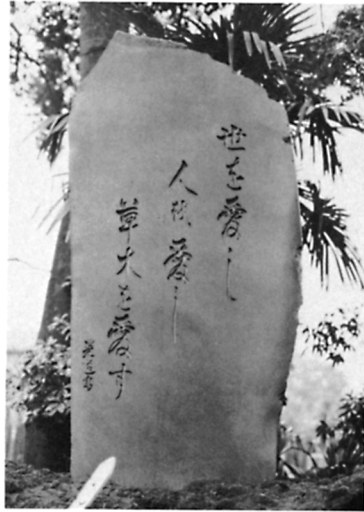 世を愛し
人を愛し
草木を愛す